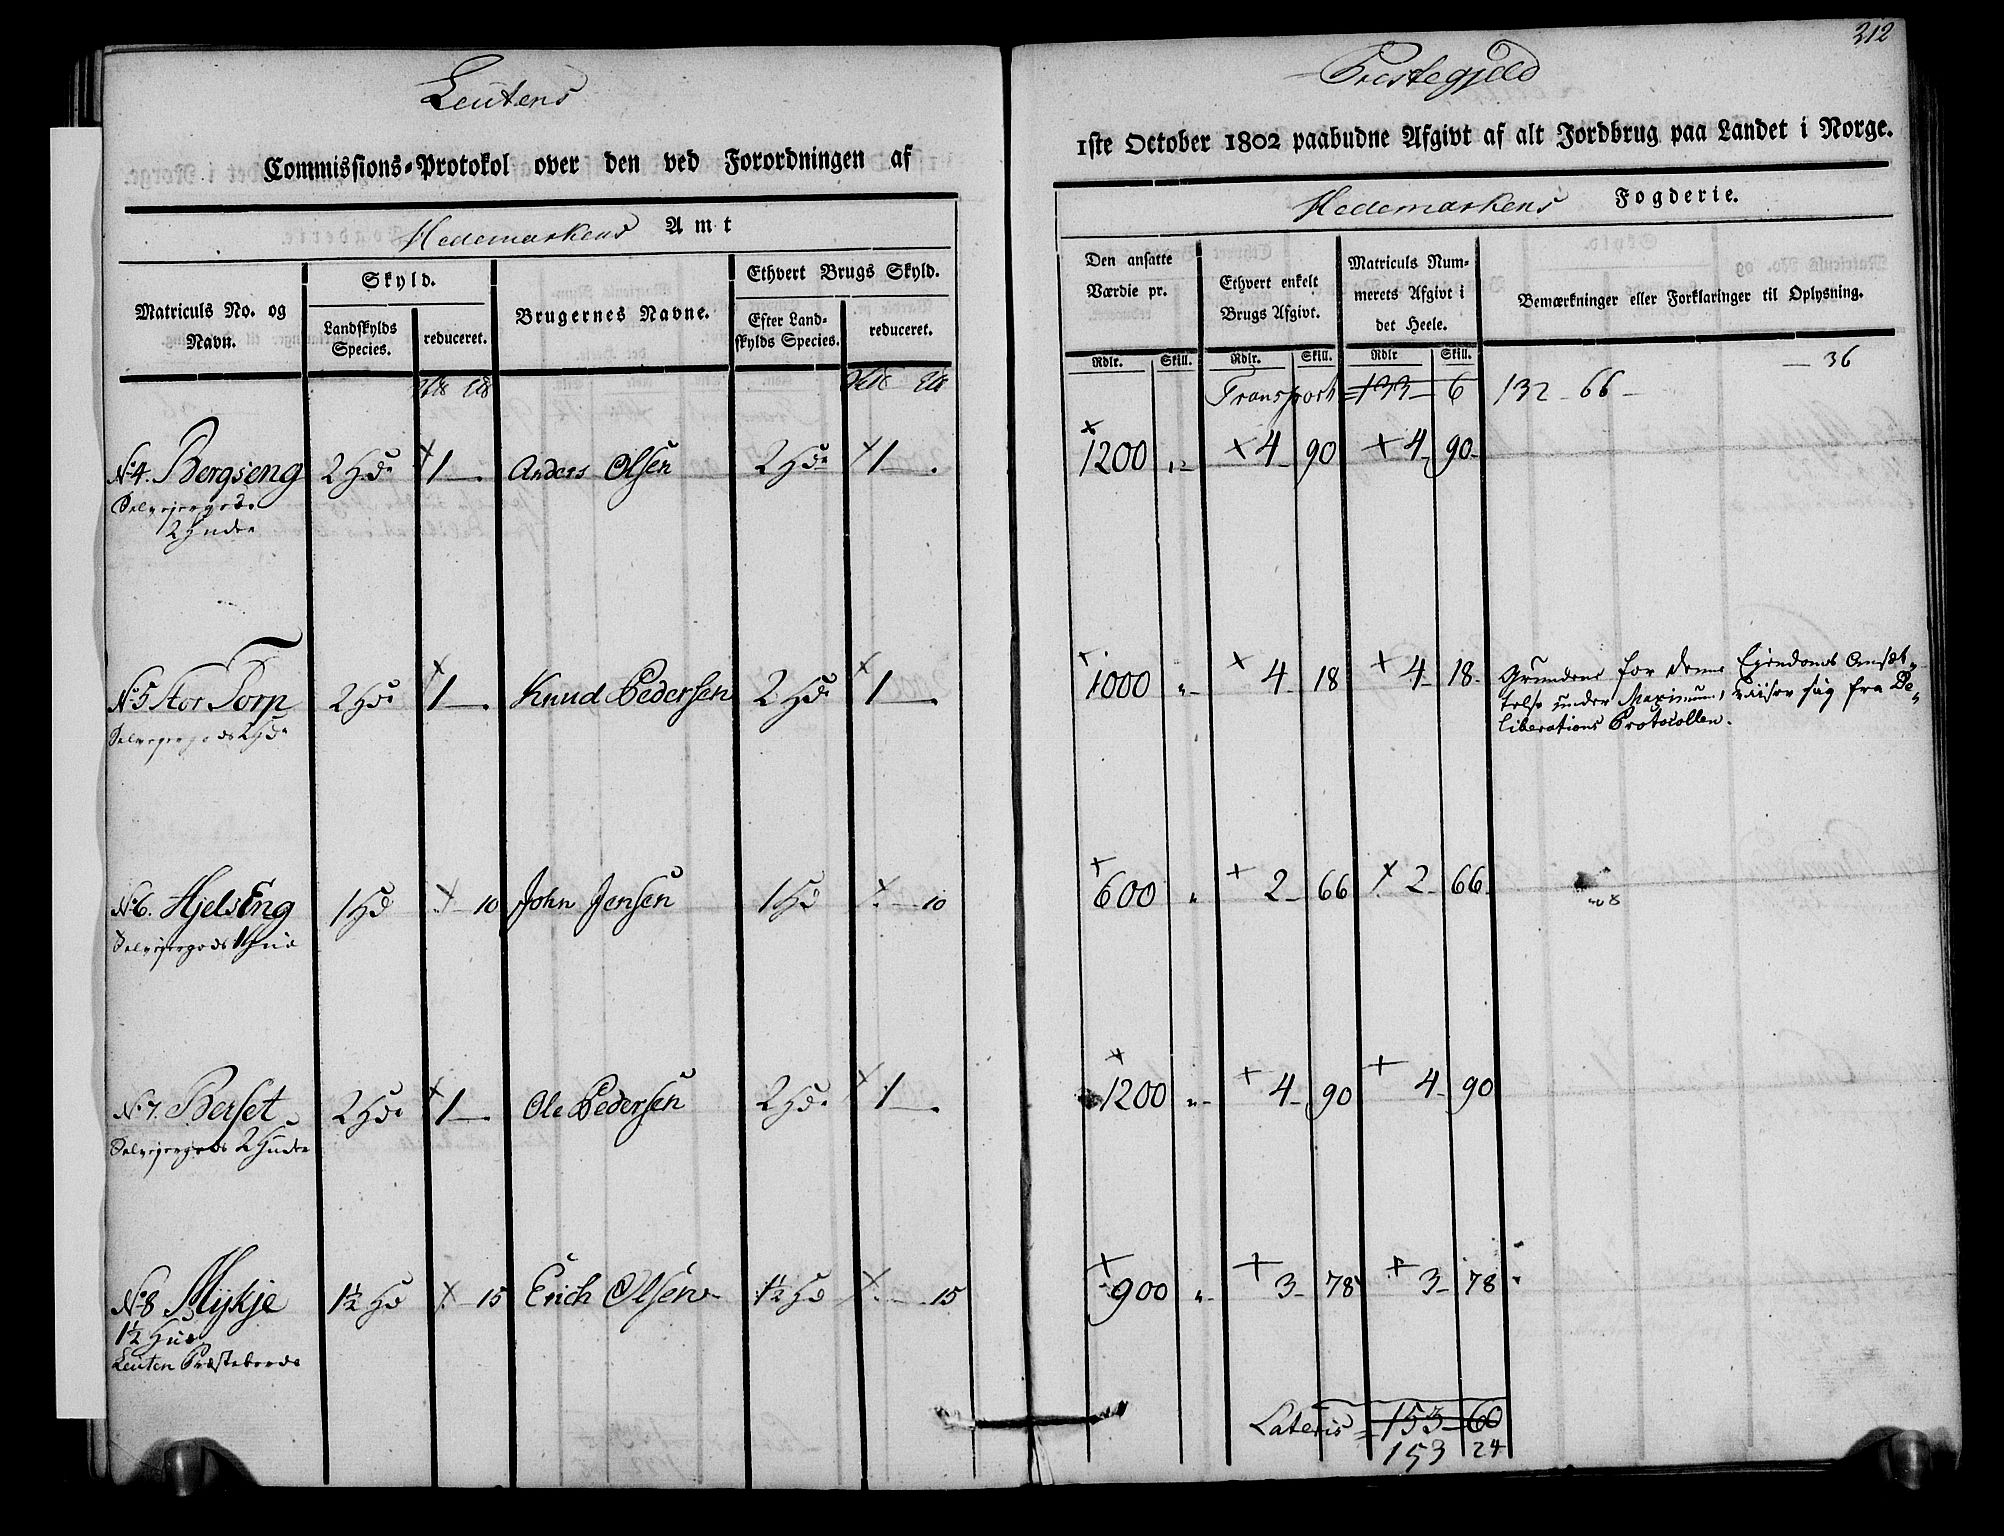 Leutens
Commissions-Protokol over den ved Forordningen af
Hedemarkens Amt
Matriculs No. og Navn.
Skyld.
Landskylds Species.
reduceret.
Brugernes Navne.
Ethvert Brugs Skyld.
Efter Landskylds Species.
reduceret.
No. 4. Bergseng 2 Hdr + 1 — . Anders Olsen 2 Hdr + 1 — .
Selveiergods
2 Huder
No. 5 Stor Torp 2 Hdr + 1 — . Knud Pedersen 2 Hdr + 1 — .
Selveiergods 2 Hdr
No. 6. HjelsEng 1 Hd + . — 10 John Jensen 1 Hd + . — 10
Selveiergods 1 Hud
No. 7. Berset 2 Hdr + 1 — . Ole Pedersen 2 Hdr + 1 — .
Selveiergods 2 Huder
No. 8 Mykje 1½ Hd + . — 15 Erich Olsen 1½ Hd + . — 15
1½ Hud
Leuten Præstebord
312
Præstegjeld
1ste October 1802 paabudne Afgivt af alt Jordbrug paa Landet i Norge.
Hedemarkens Fogderie.
Den ansatte Værdie pr.
Ethvert enkelt Brugs Afgivt.
Matriculs Nummerets Afgivt i det Heele.
Bemærkninger eller Forklaringer til Oplysning.
Rdlr. Skill. Rdlr. Skill. Rdlr Skill.
— 36
Transport 133 — 6 132 — 66 —
+ 1200 „ + 4 — 90 + 4 — 90 —
+ 1000 „ + 4 — 18 + 4 — 18 — Grunden for denne Eiendoms Ansæt-
telse under Maximum, viiser sig fra De-
liberations Protocollen.
+ 600 „ + 2 — 66 + 2 — 66
+ 1200 „ + 4 — 90 + 4 — 90
+ 900 „ + 3 — 78 + 3 — 78
Lateris = 153 — 60
153 24